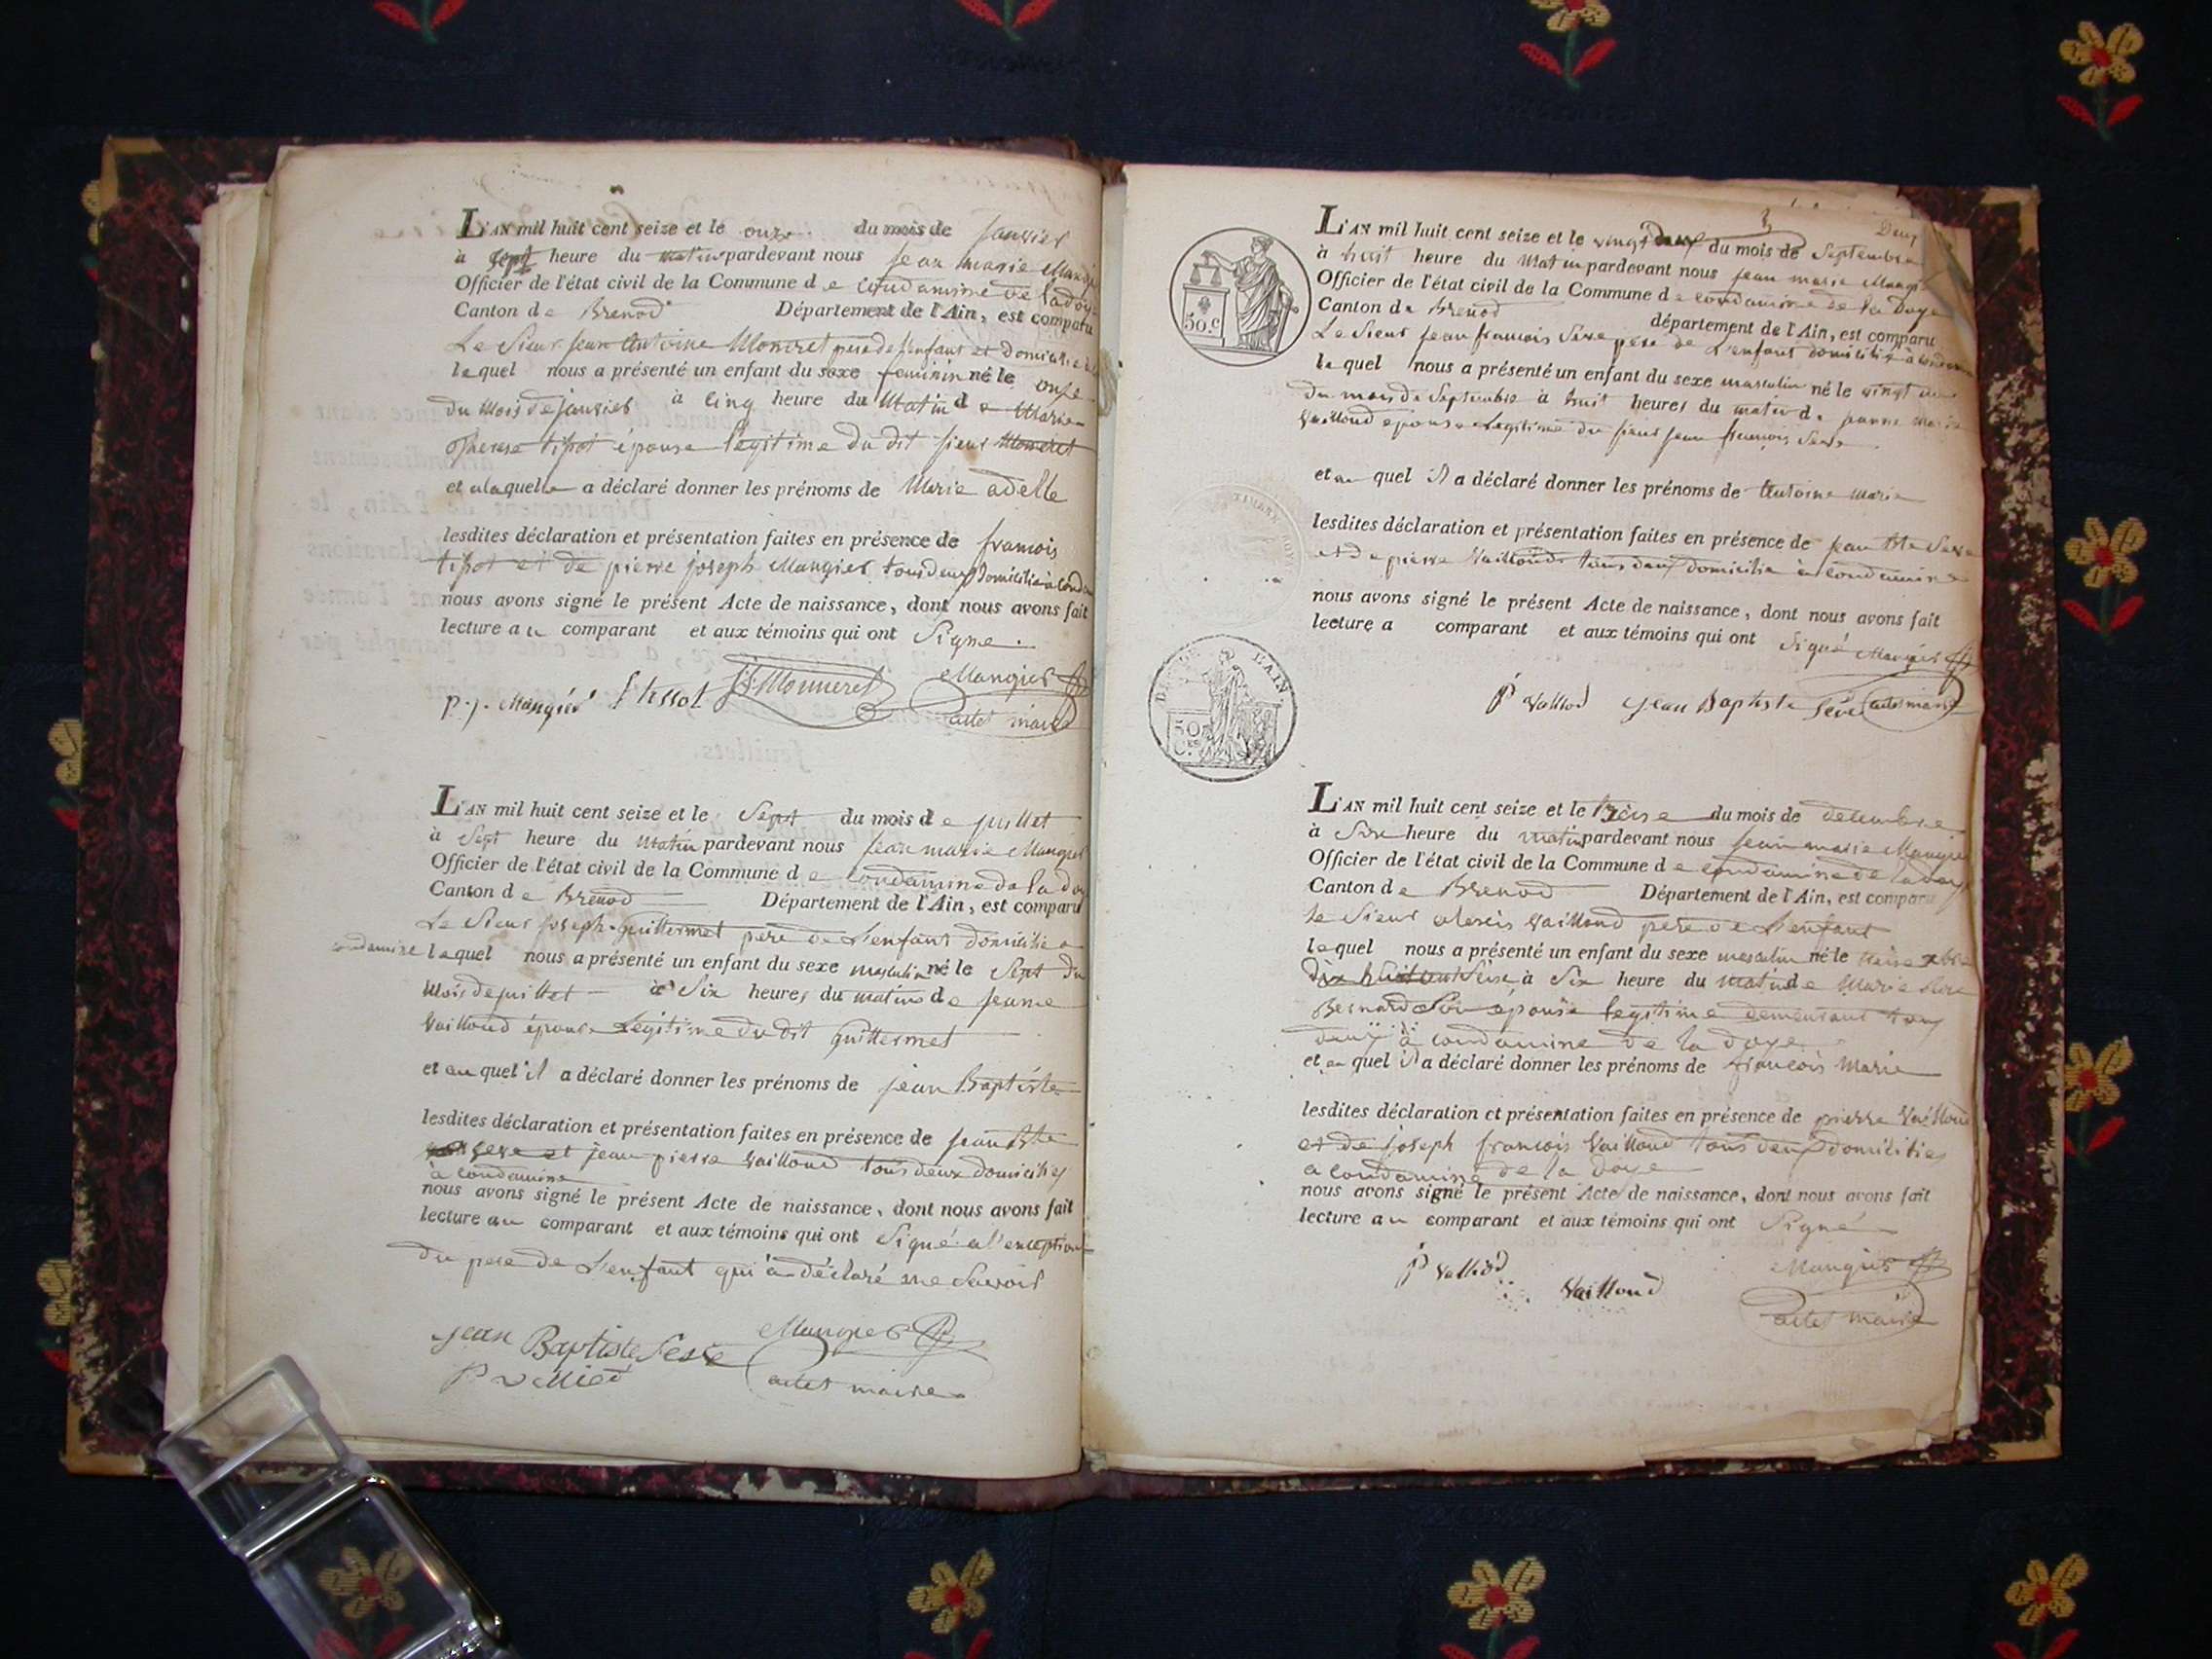 L'AN mil huit cent seize et le onze du mois de janvier
à sept heure du matin pardevant nous jean marie Mangier
Officier de l'état civil de la Commune de Condamine de la doye
Canton de Brenod Département de l'Ain, est comparu
Le Sieur jean Antoine Moneret pere de l'enfant et domicilié
lequel nous a présenté un enfant du sexe feminin né le onze
du Mois de janvier à cinq heure du Matin de Marie
therese tissot épouse legitime du dit sieur Moneret
et a laquelle a déclaré donner les prénoms de Marie adelle
lesdites déclaration et présentation faites en présence de francois
tissot et de pierre joseph Mangier tous deux domicilié à
nous avons signé le présent Acte de naissance, dont nous avons fait
lecture au comparant et aux témoins qui ont Signe.
p. j. Mangier f tissot Monneret Mangier
adet maire
L'AN mil huit cent seize et le Sept du mois de juillet
à Sept heure du Matin pardevant nous jean marie Mangier
Officier de l'état civil de la Commune de Condamine de la doy
Canton de Brenod Département de l'Ain, est comparu
Le Sieur joseph Guillermet pere de L'enfant domicilié a
condamine lequel nous a présenté un enfant du sexe masculin né le Sept du
Mois de juillet à Six heures du matin de jeanne
Vailloud épouse Legitime du dit guillermet
et au quel il a déclaré donner les prénoms de jean Baptiste
lesdites déclaration et présentation faites en présence de jean Bte
seve et jean pierre Vailloud tous deux domiciliés
à Condamine
nous avons signé le présent Acte de naissance, dont nous avons fait
lecture au comparant et aux témoins qui ont Signé a l'exception
du pere de L'enfant qui à déclaré ne Savoir
jean Baptiste Seve Mangier
P vallod adet maire
Deux
L'AN mil huit cent seize et le vingt deux du mois de Septembre
à huit heure du Matin pardevant nous jean marie Mangier
Officier de l'état civil de la Commune de Condamine de la Doye
Canton de Brenod département de l'Ain, est comparu
Le Sieur jean francois Seve pere de L'enfant domicilié à
lequel nous a présenté un enfant du sexe masculin né le vingt
du mois de Septembre à huit heures du matin de jeanne marie
Vailloud epouse Legitime du sieur jean francois Seve
et au quel il a déclaré donner les prénoms de Antoine Marie
lesdites déclaration et présentation faites en présence de jean Bte Seve
et de pierre Vailloud tous deux domicilié à Condamine
nous avons signé le présent Acte de naissance, dont nous avons fait
lecture a comparant et aux témoins qui ont Signé Mangier
P vallod jean Baptiste Seve adet maire
50 c
TIMBRE
DEP. DE L'AIN
50 Ces
L'AN mil huit cent seize et le treise du mois de decembre
à Six heure du matin pardevant nous jean marie Mangier
Officier de l'état civil de la Commune de Condamine de la doye
Canton de Brenod Département de l'Ain, est comparu
le Sieur alexis Vailloud pere de L'enfant
lequel nous a présenté un enfant du sexe masculin né le treise xbre
à Six heure du matin de Marie
épouse legitime demeurant tous
deux à Condamine de la doye
et au quel il a déclaré donner les prénoms de françois Marie
lesdites déclaration et présentation faites en présence de pierre Vailloud
et de joseph francois Vailloud tous deux domiciliés
a Condamine de la doye
nous avons signé le présent Acte de naissance, dont nous avons fait
lecture au comparant et aux témoins qui ont Signé
P vallod Vailloud Mangier
adet maire